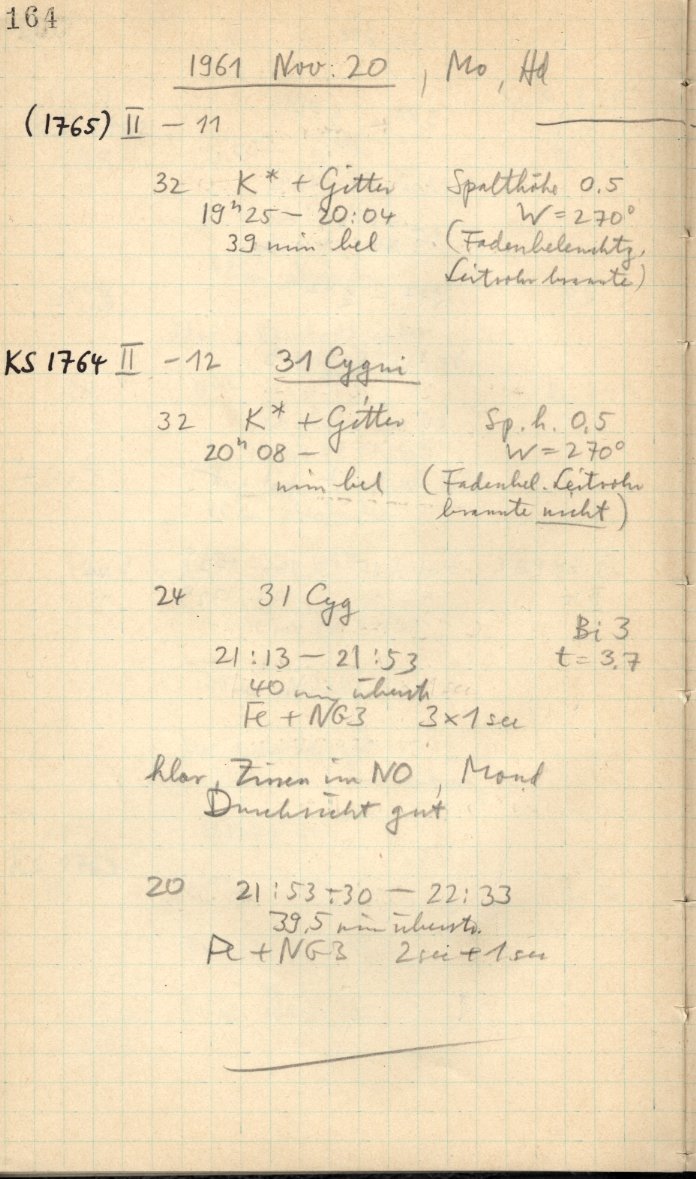 164
1961 Nov. 20, Mo, Hd
(1765) II - 11
32 K* + Gitter Spalthöhe 0,5
19h25 - 20:04 W = 270°
39 min bel (Fadenbeleuchtg,
Leitrohr brannte)
KS 1764 II - 12 31 Cygni
32 K* + Gitter Sp.h. 0,5
20h 08 - W = 270°
min bel (Fadenbel. Leitrohr
brannte nicht)
24 31 Cyg
Bi 3
21:13 - 21:53 t = 3,7
40 min überst
Fe + NG3 3x1 sec
klar, im NO, Mond
Durchsicht gut
20 21:53:30 - 22:33
39,5 min überst.
Fe + NG3 2 sec + 1 sec